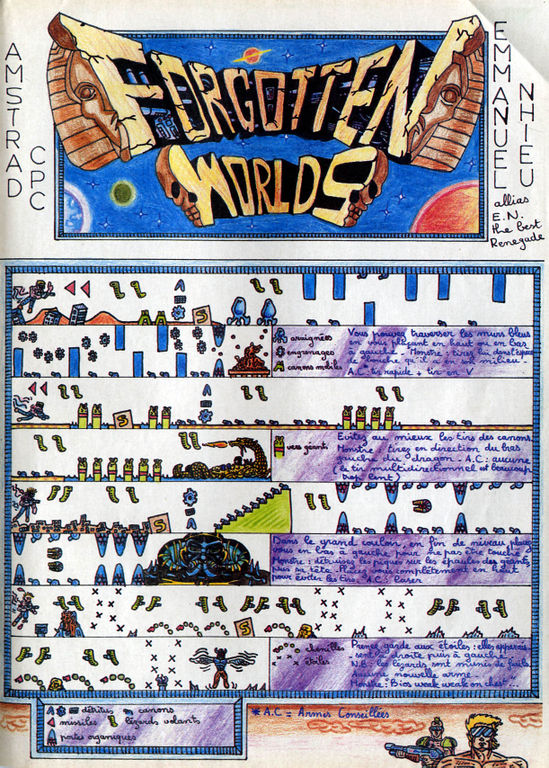 AMSTRAD
CPC
FORGOTTEN
WORLDS
EMMANUEL
NHIEU
allias
E.N.
the best
Renegade
S
araignées
engrenages
canons mobiles
Vous pouvez traverser les murs bleus
en vous plaçant en haut ou en bas
à gauche - Monstre : tirez lui dans l'épée
à gauche
milieu -
A.C : tir rapide + tir en V
S
vers géants
Evitez au mieux les tirs des canons.
Monstre : tirez en direction du bras
gauche du dragon. A.C : aucune
(le tir multidirectionnel est beaucoup
trop lent)
S
Dans le grand couloir, en fin de niveau placez
vous en bas à gauche pour ne pas être touché
Monstre : détruisez les piques sur les épaules des géants,
puis sa tête. Placez vous complètement en haut
pour éviter les tirs. A.C : laser
S
chenilles
étoiles
Prenez garde aux étoiles : elles apparais-
sent à droite puis à gauche.
N.B : les lézards sont munis de fusils.
Aucune nouvelle arme.
Monstre : Bios weak weak on chest
détritus
canons
missiles
lézards volants
portes organiques
* A.C = Armes Conseillées